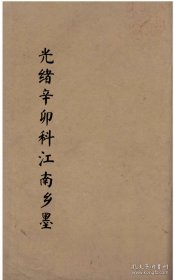 光绪辛卯科江南乡墨